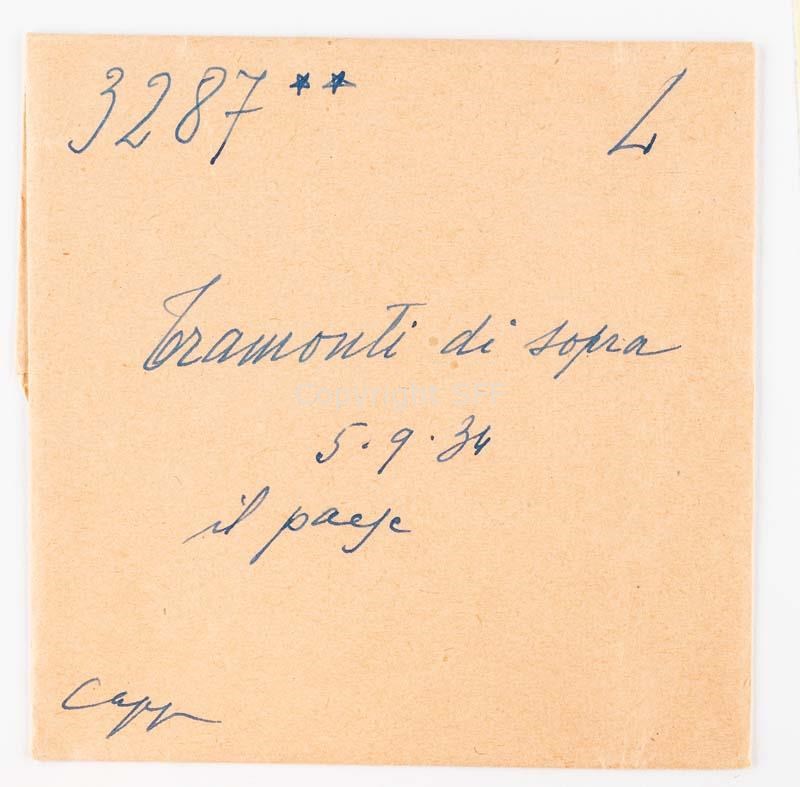 3287 ** L
Tramonti di sopra
Copyright SFF
5.9.34
il paese
Capp